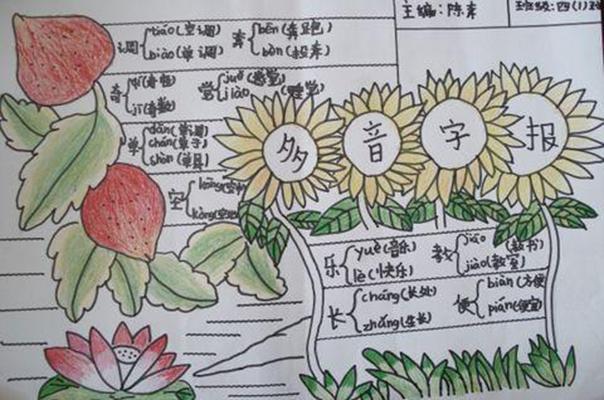 主编:陈
班级:四(1)班
调 tiáo(空调)
diào(单调)
奔 bēn(奔跑)
bèn(投奔)
奇 qí(奇怪)
jī(奇数)
觉 jué(感觉)
jiào(睡觉)
单 dān(单调)
chán(单于)
shàn(单县)
空 kōng
kòng
多音字报
乐 yuè(音乐)
lè(快乐)
教 jiāo(教书)
jiào(教室)
长 cháng(长处)
zhǎng(生长)
便 biàn(方便)
pián(便宜)